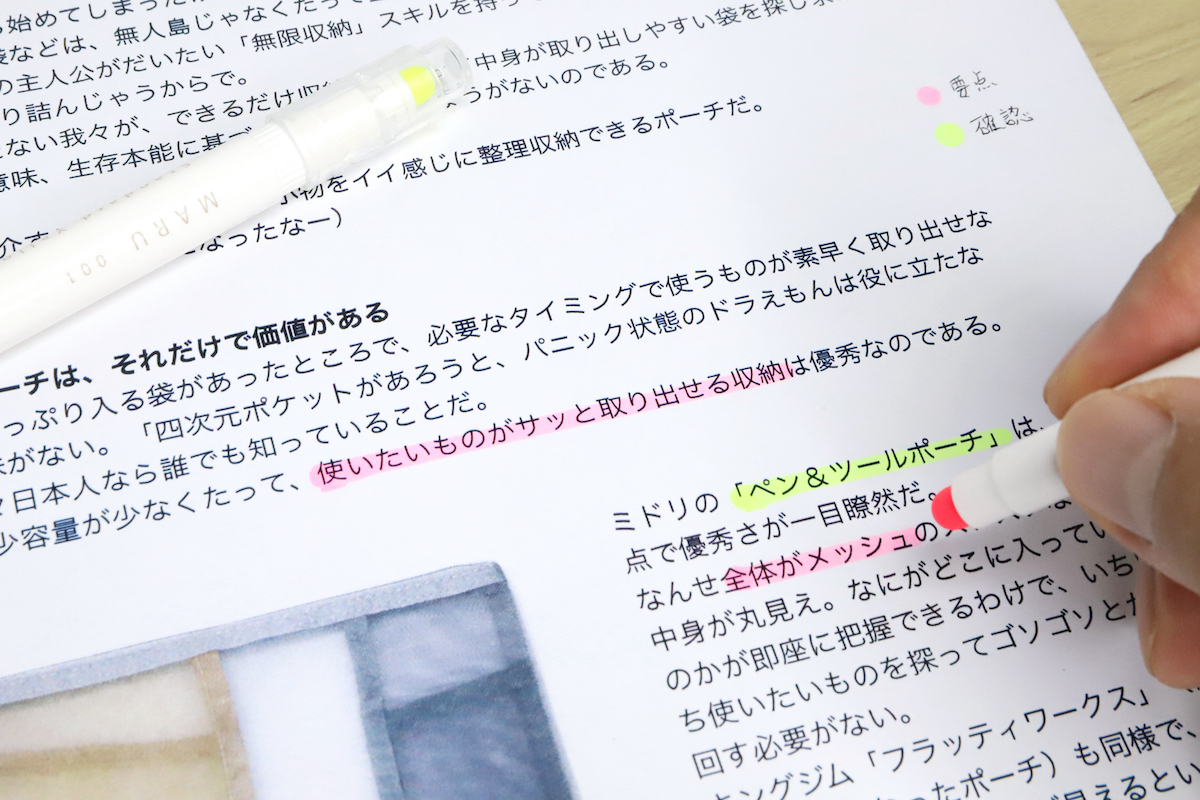 ら始めてしまった
袋などは、無人島じゃなくたって
の主人公がだいたい「無限収納」スキルを持っ
り詰んじゃうからで。 中身が取り出しやすい袋を探し
ない我々が、できるだけ収 うがないのである。
意味、生存本能に基づ
小物をイイ感じに整理収納できるポーチだ。
になったなー）
要点
確認
MARU 001
ーチは、それだけで価値がある
っぷり入る袋があったところで、必要なタイミングで使うものが素早く取り出せな
味がない。「四次元ポケットがあろうと、パニック状態のドラえもんは役に立たな
々日本人なら誰でも知っていることだ。
少容量が少なくたって、使いたいものがサッと取り出せる収納は優秀なのである。
ミドリの「ペン＆ツールポーチ」は、
点で優秀さが一目瞭然だ。
なんせ全体がメッシュの
中身が丸見え。なにがどこに入ってい
のかが即座に把握できるわけで、いち
ち使いたいものを探ってゴソゴソと
回す必要がない。
キングジム「フラッティワークス」
ったポーチ）も同様で、
見えるとい